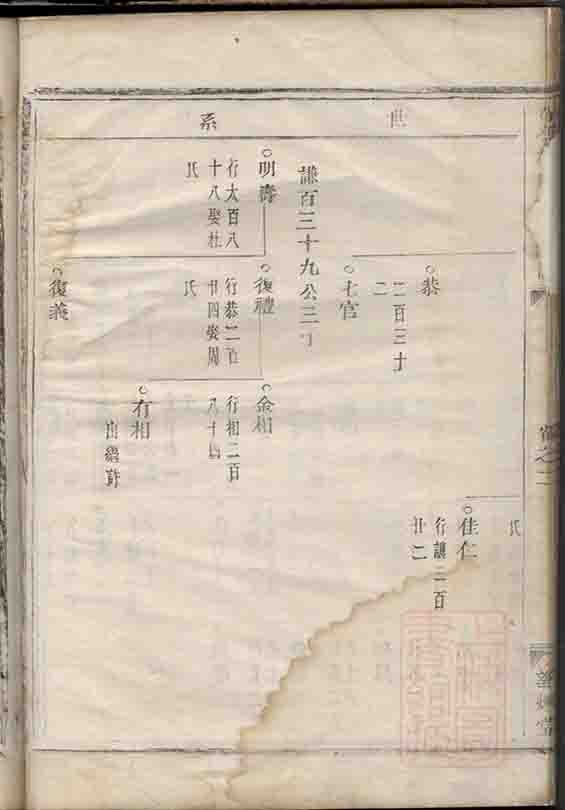 世系
氏
佳仁
行讓二百
廿二
恭
二百三十
二
七官
謙百三十九公三丁
明壽
行太百八
十八娶杜
氏
復禮
行恭二百
廿四娶周
氏
金相
行相二百
八十四
有相
出繼許
復義
卷之二